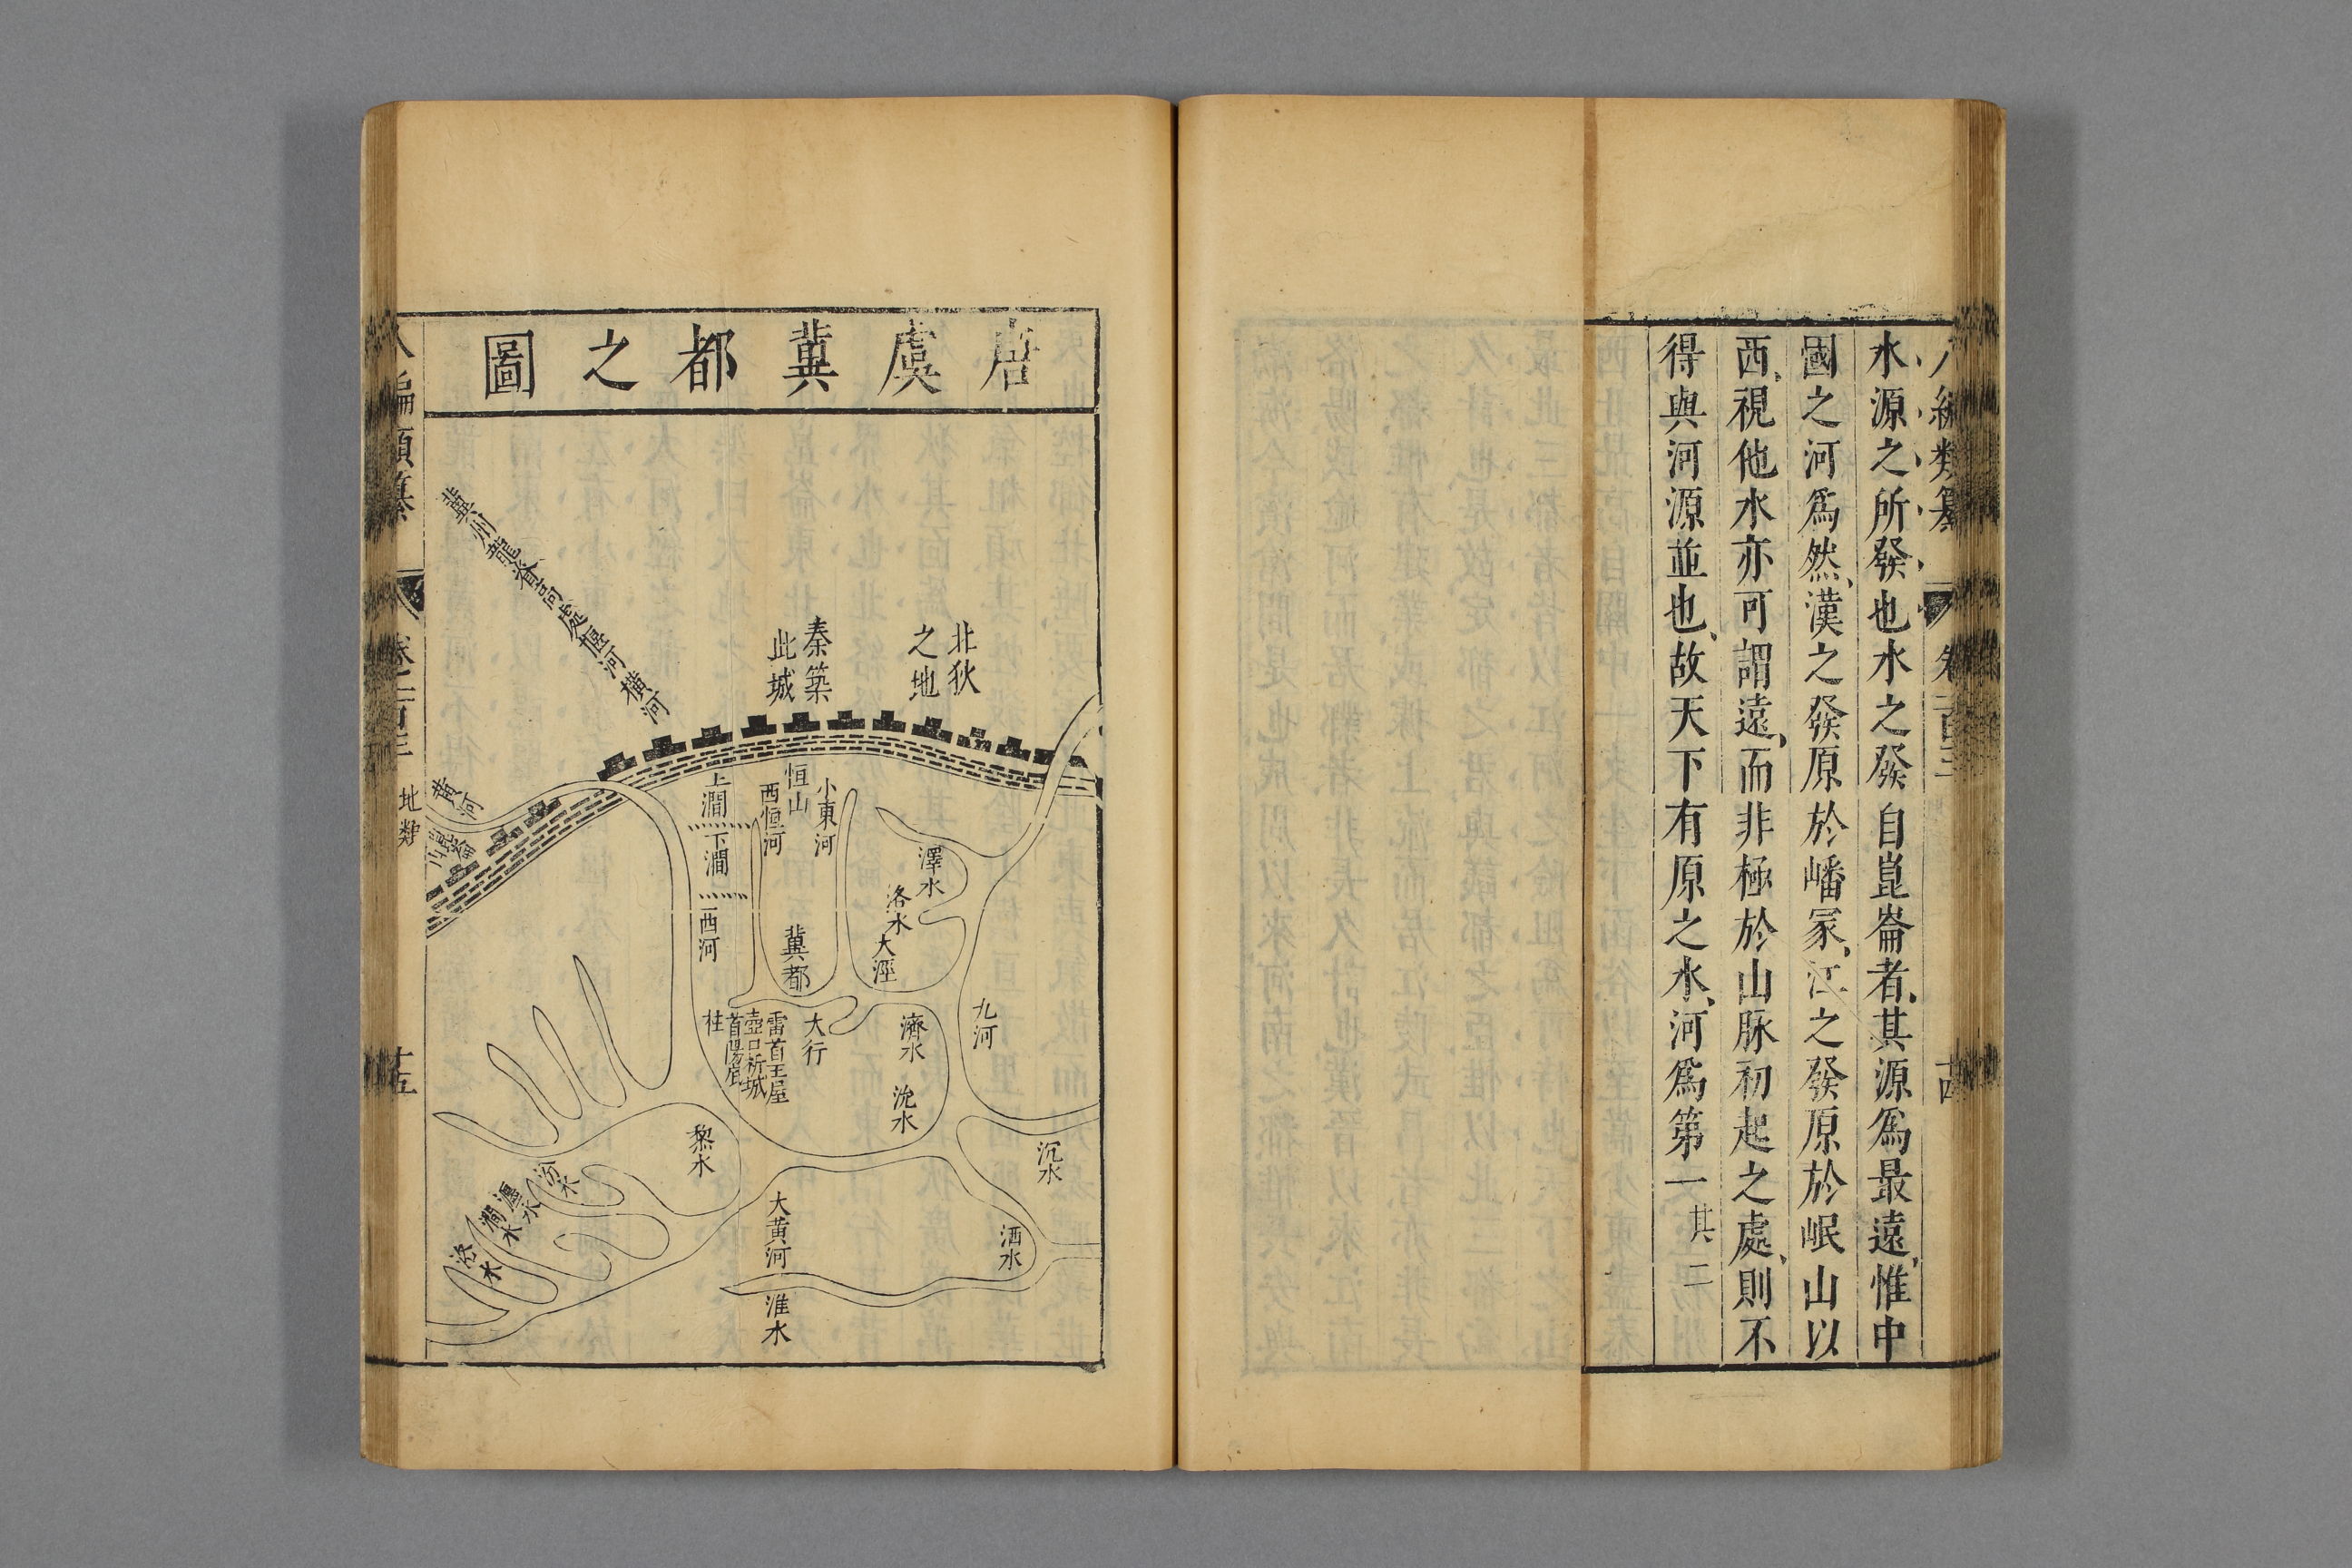 八編類纂 卷二百三 十四
水源之所發也水之發自崑崙者其源爲最遠惟中
國之河爲然漢之發原於嶓冢江之發原於岷山以
西視他水亦可謂遠而非極於山脉初起之處則不
得與河源並也故天下有原之水河爲第一其二
唐虞冀都之圖
北狄
之地
秦築
此城
冀州龍脊高處堰河橫河
黃河
崑崙
山
上澗
下澗
西河
恒山
西恒河
小東河
冀都
澤水
洛水
大涇
九河
濟水
沇水
大行
雷首王屋
壺口析城
首陽底
柱
黎水
沉水
洒水
大黃河
淮水
汾水
瀍水
澗水
洛水
八編類纂 卷二百三 地類 十五